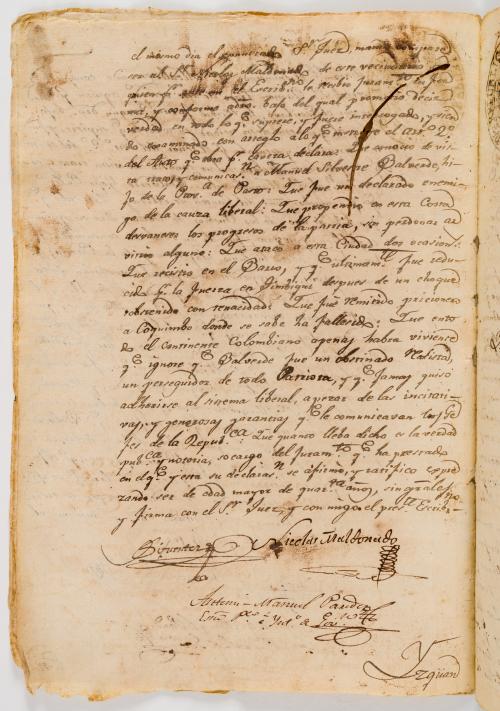 el mismo dia el enunciado Sr. Juez, mando
ser al Sr. Nicolas Maldonado de este vecindario
quien fe ante mi el Escribno. le recibio Juramto. en for
ma, y conforme á dro. bajo del qual prometio decir
verdad en todo lo qe. supiese, y fuere interrogado, y sien
do examinado con arreglo a lo el artº. 2º.
del Auto qe. obra pr. cavesa declara: Que conocio de vis
ta trato, y comunicacn. a Manuel Silvestre Balverde, hi
jo de la Prova. de Pasto: Que fue un declarado enemi
go de la cauza liberal: Que propendio en esta Costa
desvaneser los progresos de la patria, sin perdonar ar
vitrio alguno: Que ataco a esta Ciudad dos ocasions.:
Que recistio en el Barso, y qe. ultimamte. fue redu
cido pr. la fuerza en Timbiqui despues de un choque
sobstenido con tenacidad: Que fue remitido prisionero
a Coquimbo donde se sabe ha fallesido: Que en to
do el continente Colombiano apenas habra viviente
qe. ignore qe. Balverde fue un obstinado Realista,
un perseguidor de todo Patriota, y qe. jamas quiso
adherirse al sistema liberal, a pezar de las incitati
vas, y generosas garantias qe. le comunicavan los Ge
fes de la Republca. Que quanto lleba dicho es la verdad
pubca. y notoria, so cargo del Juramto. qe. ha prestado
en el qe. y esta su declarasn. se afirmo, y ratifico expre
zando ser de edad mayor de quarta. años, sin grales.
y firma con el Sr. Juez, y con migo el prest. Escribno.
Sifuentes Nicolas Maldonado
Antemi = Manuel
Esno.
Yzquand